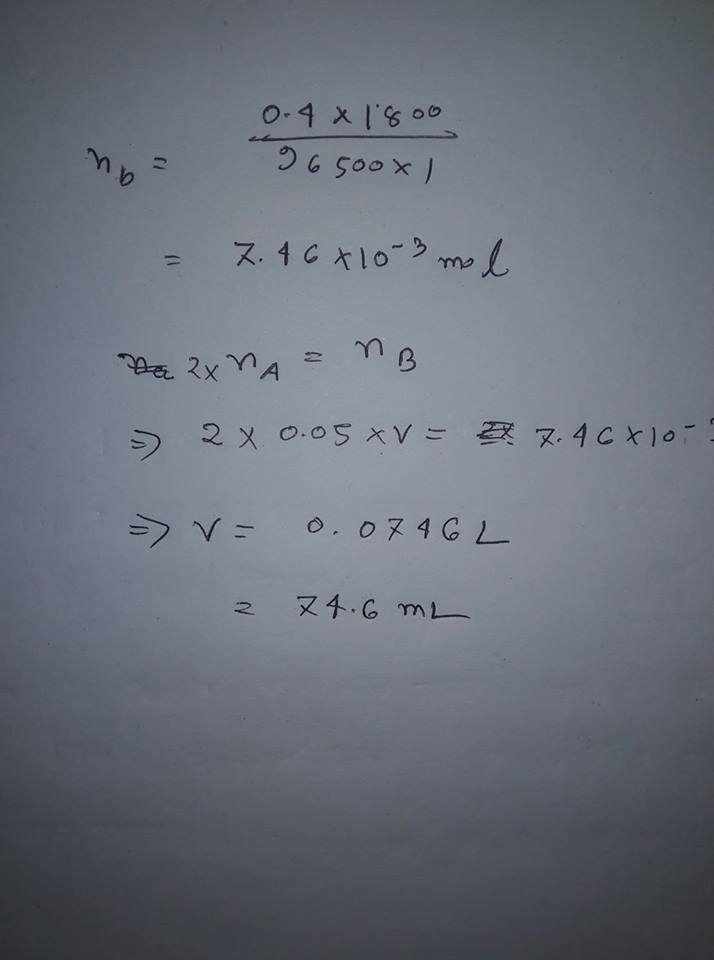 n_b = (0.4 × 1800) / (96500 × 1)
= 7.46 × 10⁻³ mol
2 × n_A = n_B
⇒ 2 × 0.05 × V = 7.46 × 10⁻³
⇒ V = 0.0746 L
= 74.6 mL